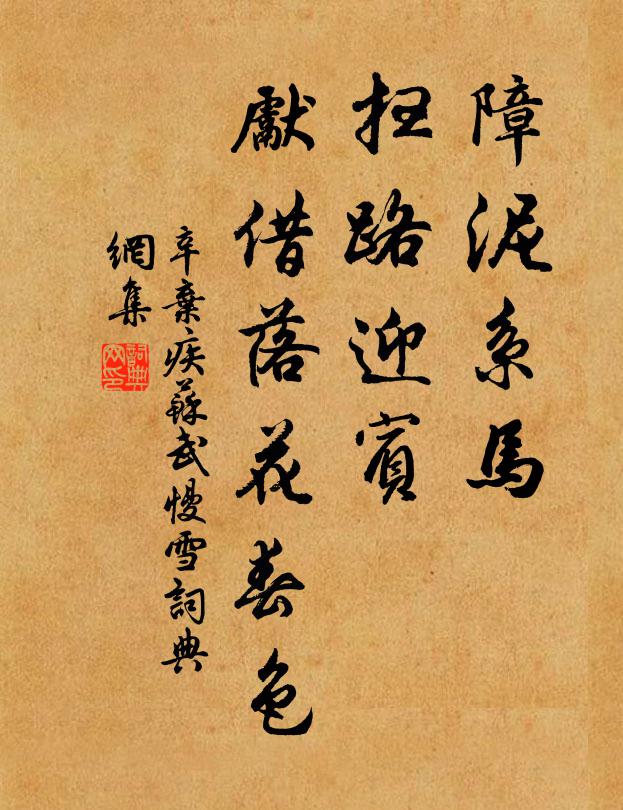 障泥系馬
掃路迎賓
獻借落花春色
辛棄疾蘇武慢雪詞典
網集
詞典